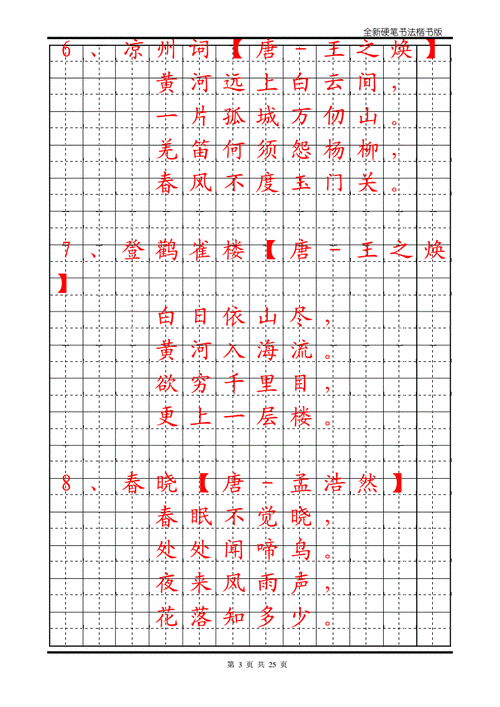 全新硬笔书法楷书版
6、凉州词【唐-王之焕】
黄河远上白云间，
一片孤城万仞山。
羌笛何须怨杨柳，
春风不度玉门关。
7、登鹳雀楼【唐-王之焕
】
白日依山尽，
黄河入海流。
欲穷千里目，
更上一层楼。
8、春晓【唐-孟浩然】
春眠不觉晓，
处处闻啼鸟。
夜来风雨声，
花落知多少。
第 3 页 共 25 页